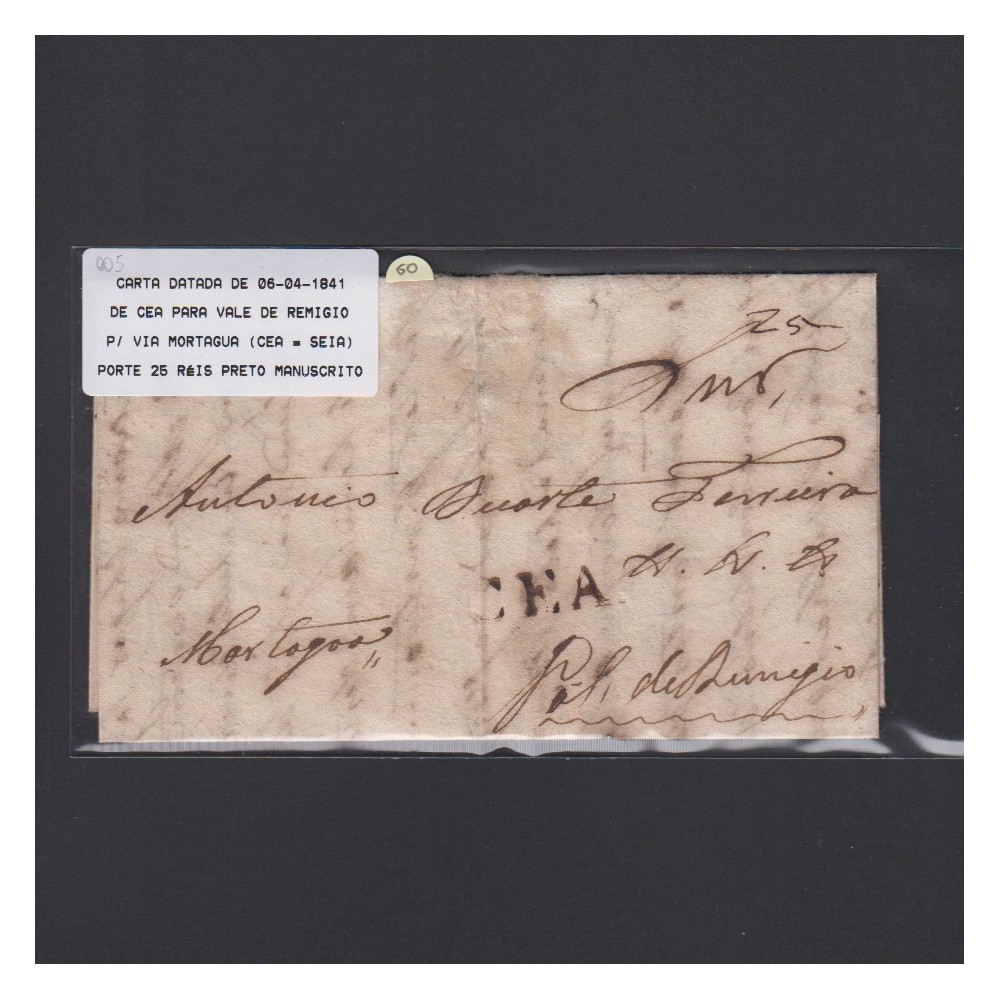 005
CARTA DATADA DE 06-04-1841
DE CEA PARA VALE DE REMIGIO
P/ VIA MORTAGUA (CEA = SEIA)
PORTE 25 RÉIS PRETO MANUSCRITO
60
25
Snr,
Antonio Duarte Ferreira
CEA
Mortagoa
de Remigio